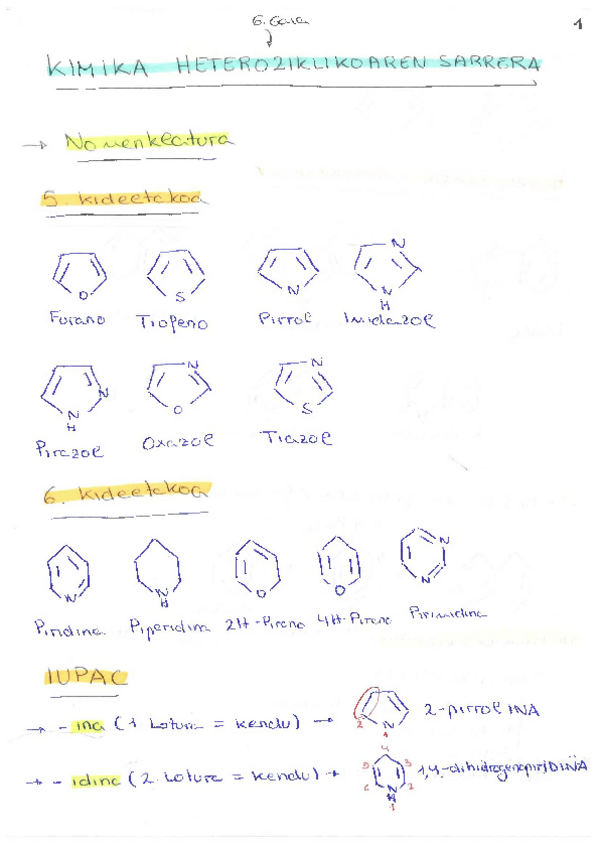 6. Gaia
1
KIMIKA HETEROZIKLIKOAREN SARRERA
→ Nomenklatura
5. kideetakoa
O S N N N H
Furano Tiofeno Pirrol Imidazol
N N H N O N S
Pirazol Oxazol Tiazol
6. kideetakoa
N N H O O N N
Piridina Piperidina 2H-Pirano 4H-Pirano Pirimidina
IUPAC
→ - ina (1 lotura = kendu) → 2 N 1 2-pirrolINA
→ - idina (2 lotura = kendu) → 4 5 3 6 2 N H 1 1,4-dihidrogenopirIDINA